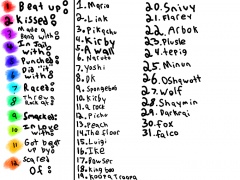 1 Beat up:
2 Kissed:
3 Made a Bond with:
4 In Jail with:
5 Punched:
6 Did "it" with:
7 Raced:
8 Threw Rock at:
9 Smacked:
10 In Love with:
11 Got Beat up by:
12 Scared Of:
1. Mario
2. Link
3. Pikachu
4. Kirby
5. A wall
6. Naruto
7. Yoshi
8. DK
9. Spongebob
10. Kirby
11. a rock
12. Pichu
13. Peach
14. The floor
15. Luigi
16. Ike
17. Bowser
18. King boo
19. Koopa Troopa
20. Snivy
21. Flarey
22. Arbok
23. Plusle
24. Tepig
25. Minun
26. Oshawott
27. Wolf
28. Shaymin
29. Darkrai
30. Fox
31. Falco